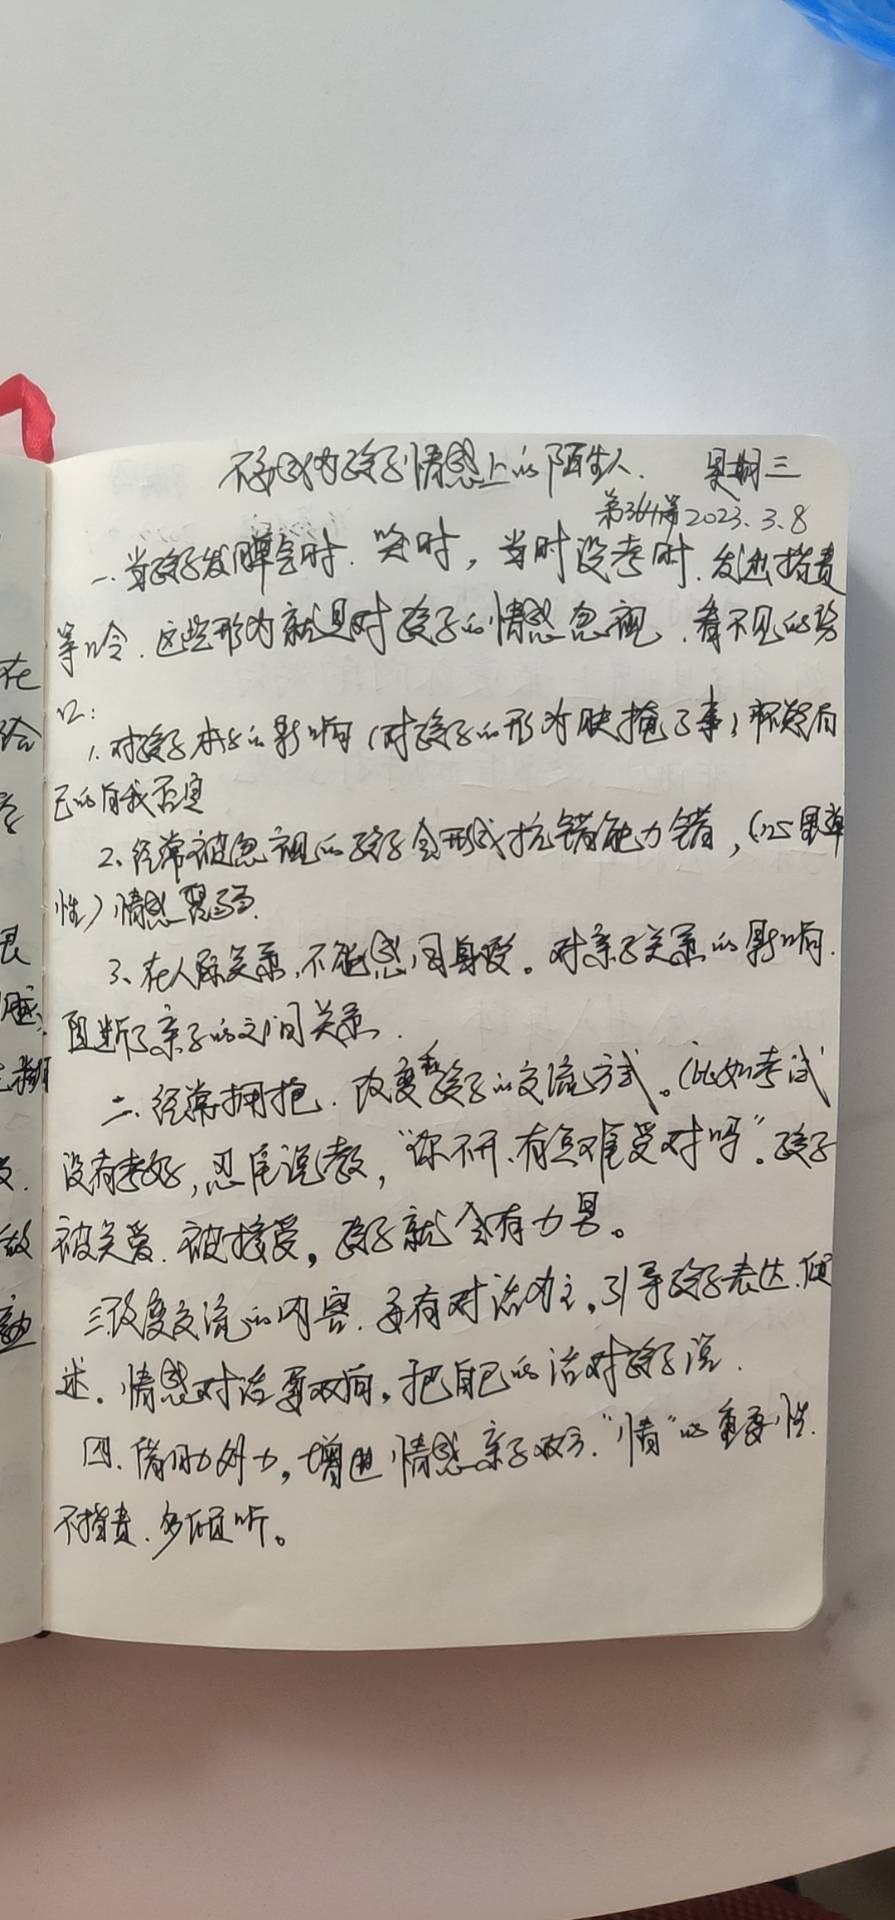 不要成为孩子情感上的陌生人. 星期三
第364篇 2023.3.8
一.当孩子发脾气时.哭时，当时没考时.发出指责
等以令.这些形为就是对孩子的情感忽视.看不见的势
1.对孩子本身的影响(对孩子的形为映掩了事)怀疑自
己的自我否定
2、经常被忽视的孩子会形成抗错能力错，(心里弹
性)情感
3、在人际关系,不能感同身受。对亲子关系的影响.
阻断了亲子的之间关系.
二.经常拥抱.改变和孩子的交流方式。(比如考试
没有考好,忍住说教,“你不开、有点难受对吗”。孩子
被关爱.被接受，孩子就会有力量。
三改变交流的内容.要有对话为主。引导孩子表达.倾
述。情感对话要双向。把自己的话对孩子说.
四.借助外力，增进情感亲子双方.“情”的重要性.
不指责.多倾听。
在
给